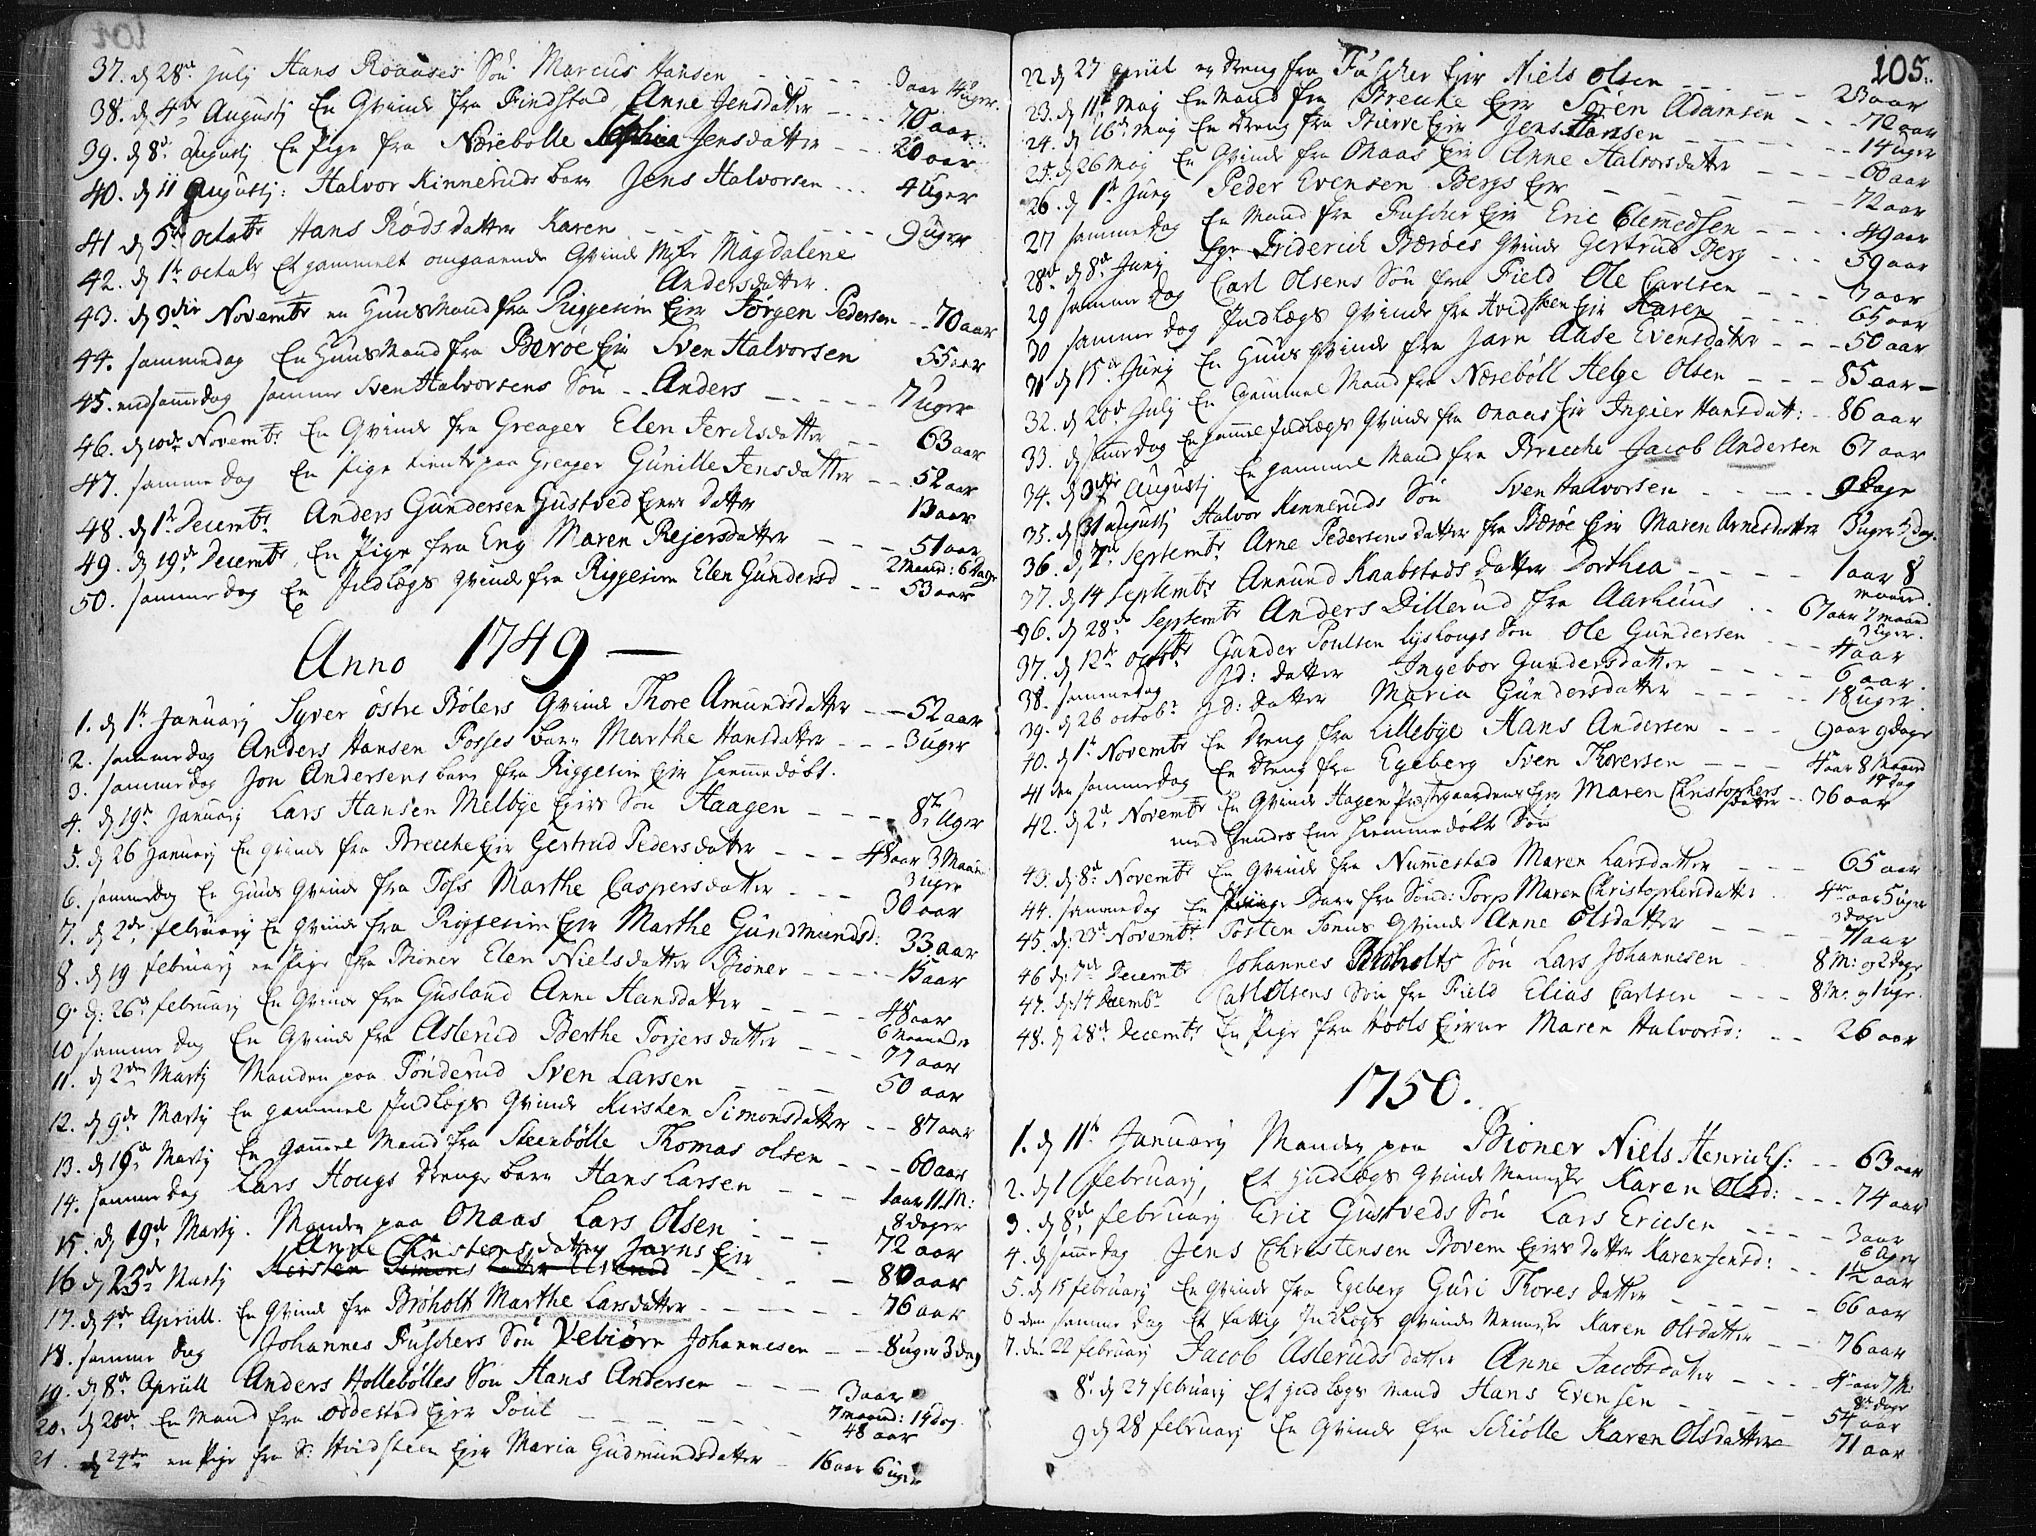 37. d 28de Julij Hans Roaases Søn Marcus Hansen - - - 3 aar 14 uger.
38. d 4de Augustj En Qvinde fra Findstad Anne Jensdatter - - - 70 aar
39. d 8de Augustj En Pige fra Næsebølle Jensdatter - - - 20 aar
40. d 11 Augustj: Halvor Kinneruds barn Jens Halvorsen - - - 4 Uger
41 d 5te octobr Hans Røds datter Karen - - - 9 Uger
42. d 1te octobr Et gammelt omgaaende Qvinde Magdalene
Andersdatter.
43. d 9de Novembr en Huusmand fra Riggesiin Eier Jørgen Pedersen - - 70 aar
44. sammedag En Huusmand fra Berøe Eier Sven Halvorsen 55 aar
45. sammedag samme Sven Halvorsens Søn - - Anders - - - 7 uger
46. d Novembr En Qvinde fra Greager Elen Jerchsdatter - - 63 aar
47. samme dag En Pige tient paa Greager Gunille Jensdatter - - 52 aar
48. d 1te Decembr Anders Gundersen Gustved Eiers datter 13 aar
49. d 19de Decembr En Pige fra Eng Maren Rejersdatter - - - 51 aar
2 Maaned: 6 dage
50. sammedag En Indlægs Qvinde fra Riggesiin Elen Gundersd - - 53 aar
Anno 1749 —
1. d 1te Januarij Syver østre Bølers Qvinde Thore Amundsdatter - - 52 aar
2. sammedag Anders Hansen Fosses barn Marthe Hansdatter - - - 3 uger
3. sammedag Jon Andersens barn fra Riggesiin Eier hiemmedøbt.
4. d 19de Januarij Lars Hansen Melbye Eiers Søn Haagen - - - 8te Uger
5. d 26 Januarij En Qvinde fra Brecche Eier Gertrud Pedersdatter - - - 48 aar 3 Maan
3 uger
6. sammedag En Huus Qvinde fra Foss Marthe Caspersdatter - - - 30 aar
7. d 2de februarij En Qvinde fra Riggesiin Eier Marthe Gundmundsd: 33 aar
8. d 19 februarij en Pige fra Bioner Elen Nielsdatter Bioner - - - 15 aar
9. d: 26de februarij En Qvinde fra Gusland Anne Hansdatter - - - 48 aar
6 Maaneder
10 samme dag En Qvinde fra Aslerud Berthe Torjersdatter - - - 77 aar
11. d 2den Martij Manden paa Tønderud Sven Larsen - - - 50 aar
12. d 9de Martij En gammel Indlægs Qvinde Kirsten Simonsdatter - - 87 aar
13. d 16de Martij En gammel Mand fra Steenbølle Thomas Olsen - - - 60 aar
14. samme dag Lars Hougs drenge barn Hans Larsen - - - 1 aar 11 M:
8 dager
15. d 19de Martij. Manden paa Onaas Lars Olsen - - - 72 aar
Anne Christensdatter Jarns Eier
16 d 23de Martij - - - 80 aar
17. d 4de Aprill. En Qvinde fra Brøholt Marthe Larsdatter - - - 76 aar
18. samme dag Johannes Fuschers Søn Vebiørn Johannesen - - 8 uger 3 dag
19. d 8de Aprill Anders Hollebølles Søn Hans Andersen - - - 3 aar
7 maaned: 14 dag
20. d 20de En Mand fra Oddestad Eier Poul - - - 48 aar
21. d 24de en Pige fra S: Hvidsteen Eier Maria Gudmundsdatter - 16 aar 6 uger
105.
22 d 27 april en dreng fra Fuscher Eier Niels Olsen - - - 23 aar
23. d 11te Maij En Mand fra Brecche Eier Søren Adamsen - - - 72 aar
24. d 16de Maij En dreng fra Bierre Eier Jens Hansen - - - 14 uger
25. d 26 Maij En Qvinde fra Onaas Eier Anne Halvorsdatter - - - 60 aar
26. d 1te Junij Peder Evensen Bergs Eier - - - 72 aar
27 sammedag En Mand fra Fuscher Eier Eric Clemedsen - - - 49 aar
28de d 8de Junij Hr Friderich Bærøes Qvinde Gertrud Berg - - - 59 aar
29 samme dag Carl Olsens Søn fra Field Ole Carlsen - - - 7 aar
30 samme dag Indlægs Qvinde fra Hvidsteen Eier Karen - - - 65 aar
31 d 15de Junij En Huus Qvinde fra Jarn Aase Evensdatter - - - 50 aar
32. d 20de Julij En Gammel Mand fra Næsebøll Helge Olsen - - - 85 aar -
33. d samedag En gammel Indlægs Qvinde fra Onaas Eier Ingier Hansdatt: - 86 aar
34. d 3die Augustj En gammel Mand fra Brecche Jacob Andersen 67 aar
35. d 31 augustj Halvor Kinneruds Søn Sven Halvorsen - - - 9 Dage
36. d 7de Septembr Arne Pedersens datter fra Bærøe Eier Maren Arnesdatter 3 uger 5 dag.
37. d 14 Septembr Annund Knabstads datter Dorthea - - - 1 aar 8
maaned.
36. d 28de Septembr Anders Dillerud fra Aarhuus - - 67 aar 7 maand
3 uger.
37. d 12te octobr Gunder Poulsen Søn Ole Gundersen - - - 4 aar
38. sammedag Jd: datter Ingebor Gundersdatter - - - 6 aar.
39. d 26 octobr Jd: datter Maria Gundersdatter - - - 18 uger.
40. d 1te Novembr En dreng fra Lillebye Hans Andersen - - - 9 aar 9 dage
41 den sammedag En dreng fra Egeberg Sven Thoresen - - - 4 aar 8 Maaned
14 dag
42. d 2de Novembr En Qvinde Hagen Præstegaardens Eier Maren Christophers
datter - - 36 aar
med hendes hiemmedøbte Søn
43. d 8de Novembr En Qvinde fra Nummestad Maren Larsdatter - - - 65 aar
44. samme dag En Barn fra Sønd: Torp Maren Christophersdatter - 4 aar 5 uger
3 dage
45. d: 23de Novembr Tosten Qvinde Anne Olsdatter - - - 71 aar
46 d: 7de Decembr Johannes Brøholts Søn Lars Johannesen - 8 M: og 2 dage
47. d: 14 Decembr Carl Olsens Søn fra Field Elias Carlsen - - - 8 M. 1 uge.
48. d 28de Decembr En Pige fra Hoels Eierne Maren Halvorsd: - - 26 aar
1750.
1. d 11te Januarij Manden paa Bioner Niels Henrichs: - - 63 aar
2. d 1 februarij, Et Indlægs Qvinde Menniske Karen Olsd: - - - 74 aar
3. d 8de februarij Eric Gustveds Søn Lars Ericsen - - - 3 aar
6 Uger
4. d samedag Jens Christensen Bovem Eiers datter Karen Jensd: - - 1½ aar
5. d 15 februarij En Qvinde fra Egeberg Guri Thoresdatter - - - 66 aar
6 den samme dag Et fattig Indlægs Qvinde Menniske Karen Olsdatter - - - 76 aar
7. den 22 februarij Jacob Asleruds datter Anne Jacobsdatter - - - 4 aar 7 M:
8te dage
8. d 27 februarij Et Indlægs Mand Hans Evensen - - - 54 aar
9 d 28 februarij En Qvinde fra Schiølle Karen Olsdatter 71 aar